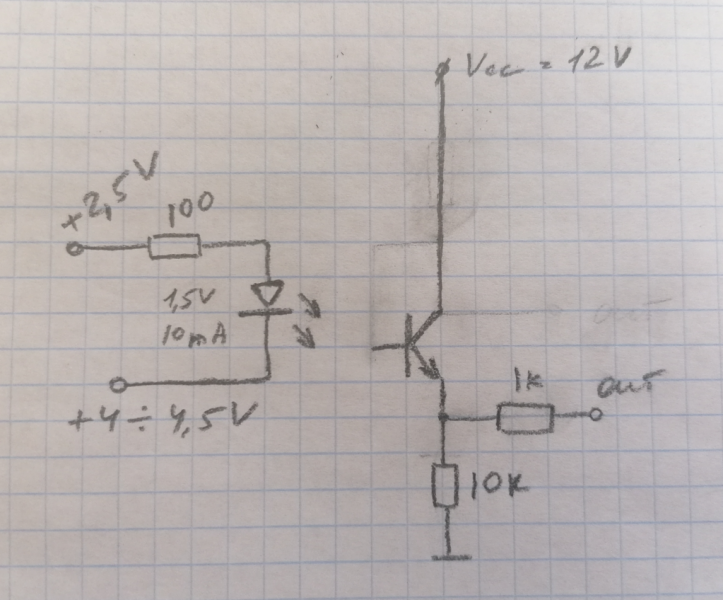 Vcc = 12V
+2,5V
100
1,5V
10mA
1k
out
+4÷4,5V
10k
out